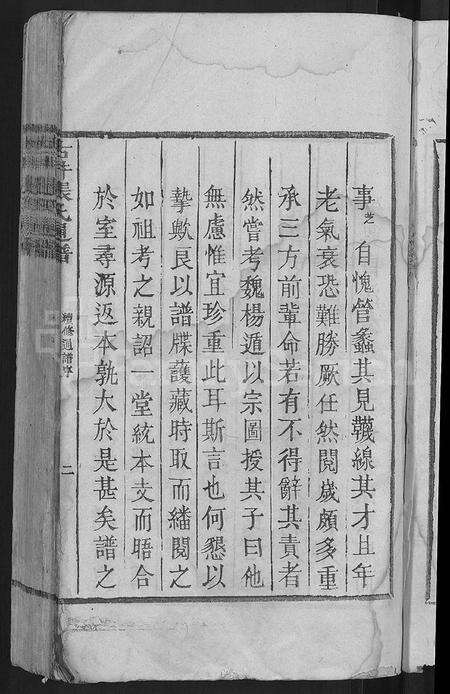 事芝自愧管蠡其見韈線其才且年
老氣衰恐難勝厥任然閱歲頗多重
承三方前輩命若有不得辭其責者
然嘗考魏楊遁以宗圖授其子曰他
無慮惟宜珍重此耳斯言也何懇以
摯歟良以譜牒護藏時取而繙閱之
如祖考之親詔一堂統本支而晤合
於室尋源返本孰大於是甚矣譜之
張氏通譜
續修通譜序
二